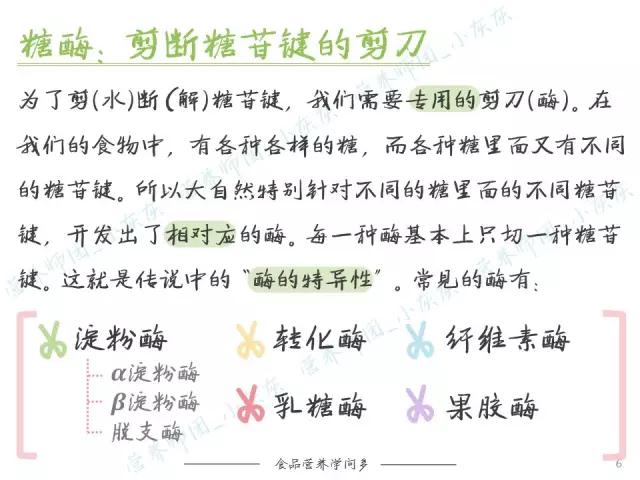 糖酶：剪断糖苷键的剪刀
为了剪(水)断(解)糖苷键，我们需要专用的剪刀(酶)。在
我们的食物中，有各种各样的糖，而各种糖里面又有不同
的糖苷键。所以大自然特别针对不同的糖里面的不同糖苷
键，开发出了相对应的酶。每一种酶基本上只切一种糖苷
键。这就是传说中的“酶的特异性”。常见的酶有：
淀粉酶 转化酶 纤维素酶
α淀粉酶
β淀粉酶 乳糖酶 果胶酶
脱支酶
食品营养学问多 6
营养师团_小灰灰